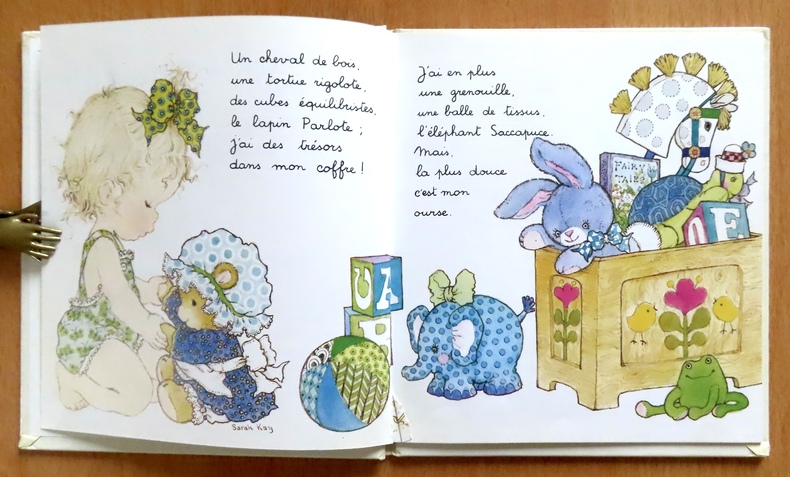 Un cheval de bois,
une tortue rigolote,
des cubes équilibristes,
le lapin Parlote ;
j'ai des trésors
dans mon coffre !
Sarah Kay
U A
J'ai en plus
une grenouille,
une balle de tissus,
l'éléphant Saccapuce.
Mais,
la plus douce
c'est mon
ourse.
FAIRY
TALES
E